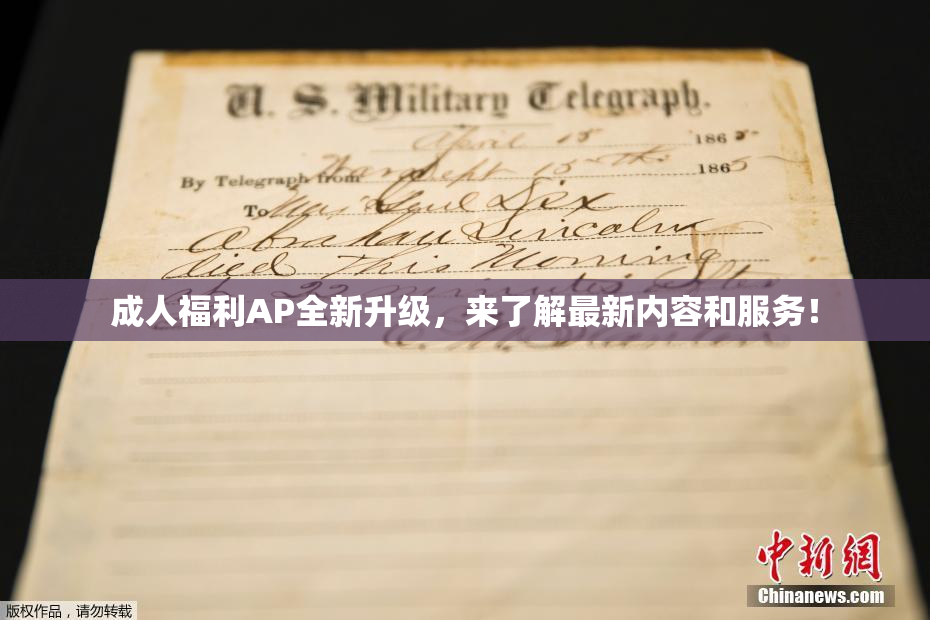 U. S. Military Telegraph.
April 15 1865
By Telegraph from War Dept 15th 1865
To Maj Genl Dix
Abraham Lincoln
died This Morning
at 22 minutes after
成人福利AP全新升级，来了解最新内容和服务！
E. M. Stanton
中新网
Chinanews.com
版权作品，请勿转载